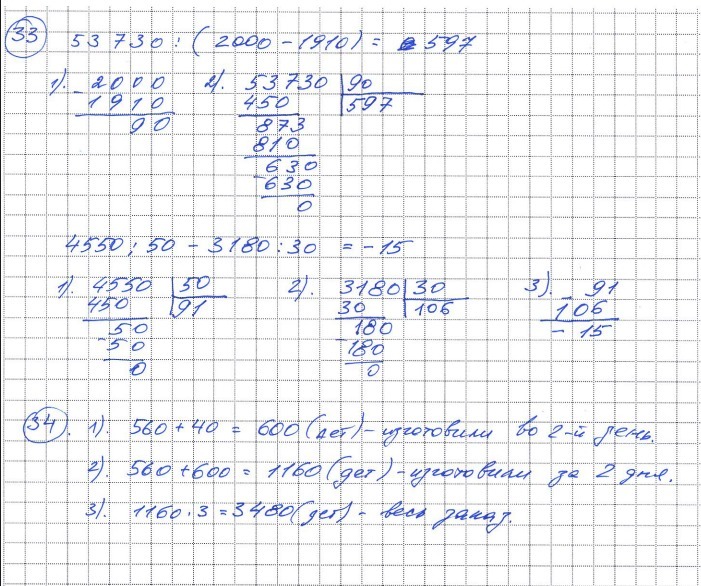 33 53 730 : ( 2000 - 1910) = 597
1). 2000 2). 53730 90
- 1910 450 597
90 873
810
630
- 630
0
4550 : 50 - 3180 : 30 = -15
1). 4550 50 2). 3180 30 3). - 91
450 91 30 106 106
50 180 - 15
- 50 - 180
0 0
34. 1). 560 + 40 = 600 (дет) - изготовили во 2-й день.
2). 560 + 600 = 1160 (дет) - изготовили за 2 дня.
3). 1160 · 3 = 3480 (дет) - весь заказ.